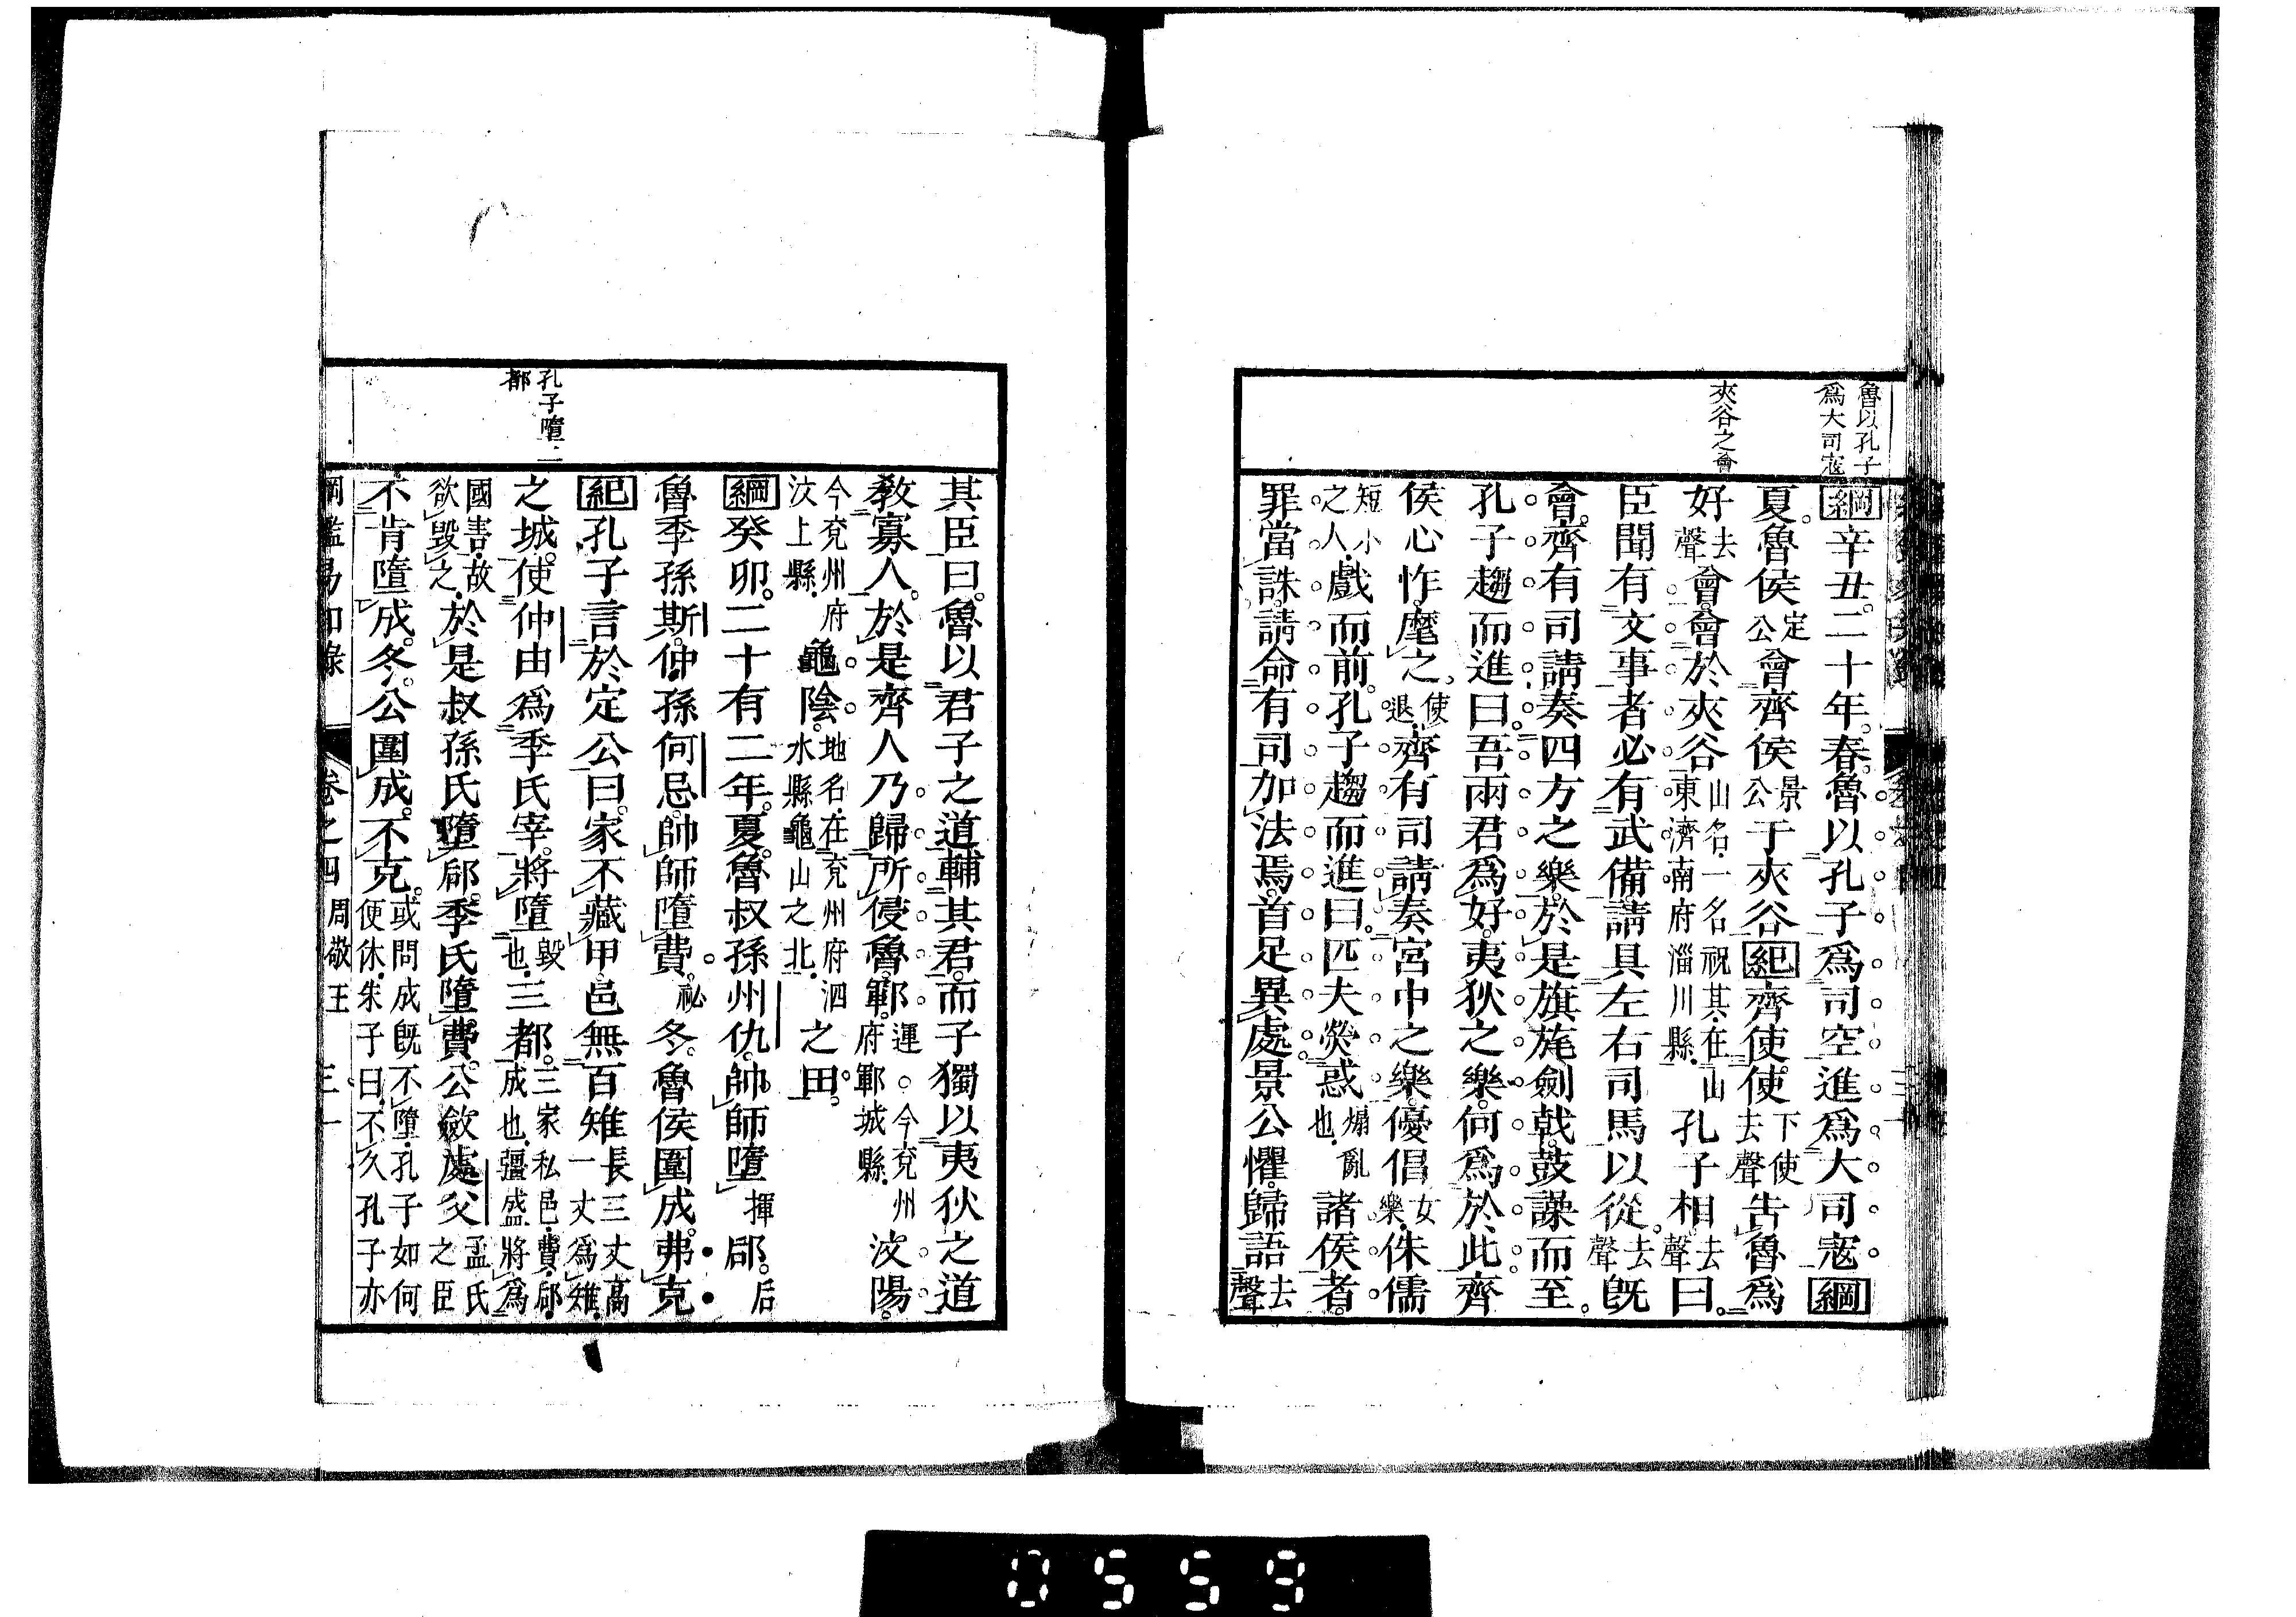 魯以孔子
爲大司寇
夾谷之會
綱辛丑二十年春魯以孔子爲司空進爲大司寇綱
夏魯侯定公會齊侯景公于夾谷紀齊使使下使去聲告魯爲
好去聲會會於夾谷山名一名祝其在山東濟南府淄川縣孔子相去聲曰
臣聞有文事者必有武備請具左右司馬以從去聲既
會齊有司請奏四方之樂於是旗旄劍戟鼓譟而至
孔子趨而進曰吾兩君爲好夷狄之樂何爲於此齊
侯心怍麾之使退齊有司請奏宮中之樂優倡女樂侏儒
短小之人戲而前孔子趨而進曰匹夫熒惑煽亂也諸侯者
罪當誅請命有司加法焉首足異處景公懼歸語去聲
孔子墮三
都
其臣曰魯以君子之道輔其君而子獨以夷狄之道
教寡人於是齊人乃歸所侵魯鄆運今兗州府鄆城縣汶陽
今兗州府汶上縣龜陰地名在兗州府泗水縣龜山之北之田
綱癸卯二十有二年夏魯叔孫州仇帥師墮揮郈后
魯季孫斯仲孫何忌帥師墮費祕冬魯侯圍成弗克
紀孔子言於定公曰家不藏甲邑無百雉長三丈高一丈爲雉
之城使仲由爲季氏宰將墮毀也三都三家私邑費郈成也彊盛將爲
國害故欲毀之於是叔孫氏墮郈季氏墮費公斂處父孟氏之臣
不肯墮成冬公圍成不克或問成既不墮孔子如何便休朱子曰不久孔子亦
綱鑑易知錄 卷之四 周敬王 三一